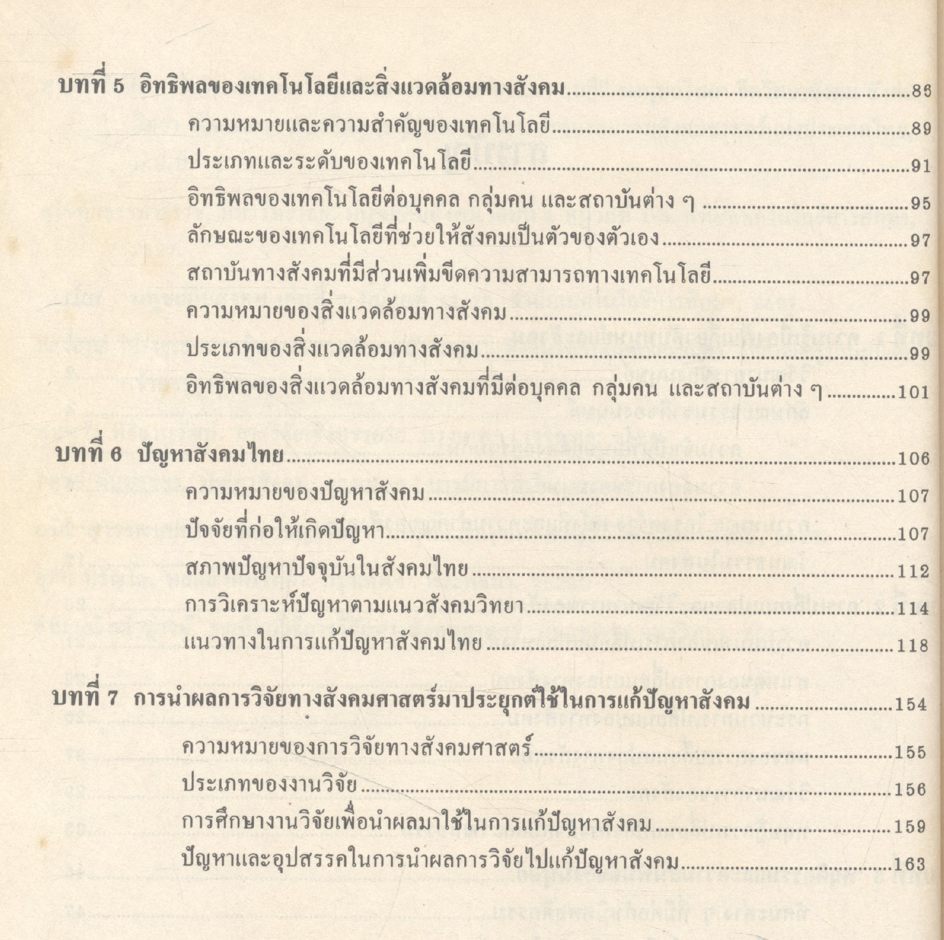 บทที่ 5 อิทธิพลของเทคโนโลยีและสิ่งแวดล้อมทางสังคม............86
ความหมายและความสำคัญของเทคโนโลยี............89
ประเภทและระดับของเทคโนโลยี............91
อิทธิพลของเทคโนโลยีต่อบุคคล กลุ่มคน และสถาบันต่าง ๆ ............95
ลักษณะของเทคโนโลยีที่ช่วยให้สังคมเป็นตัวของตัวเอง............97
สถาบันทางสังคมที่มีส่วนเพิ่มขีดความสามารถทางเทคโนโลยี............97
ความหมายของสิ่งแวดล้อมทางสังคม............99
ประเภทของสิ่งแวดล้อมทางสังคม............99
อิทธิพลของสิ่งแวดล้อมทางสังคมที่มีต่อบุคคล กลุ่มคน และสถาบันต่าง ๆ ............101
บทที่ 6 ปัญหาสังคมไทย............106
ความหมายของปัญหาสังคม............107
ปัจจัยที่ก่อให้เกิดปัญหา............107
สภาพปัญหาปัจจุบันในสังคมไทย............112
การวิเคราะห์ปัญหาตามแนวสังคมวิทยา............114
แนวทางในการแก้ปัญหาสังคมไทย............118
บทที่ 7 การนำผลการวิจัยทางสังคมศาสตร์มาประยุกต์ใช้ในการแก้ปัญหาสังคม............154
ความหมายของการวิจัยทางสังคมศาสตร์............155
ประเภทของงานวิจัย............156
การศึกษางานวิจัยเพื่อนำผลมาใช้ในการแก้ปัญหาสังคม............159
ปัญหาและอุปสรรคในการนำผลการวิจัยไปแก้ปัญหาสังคม............163